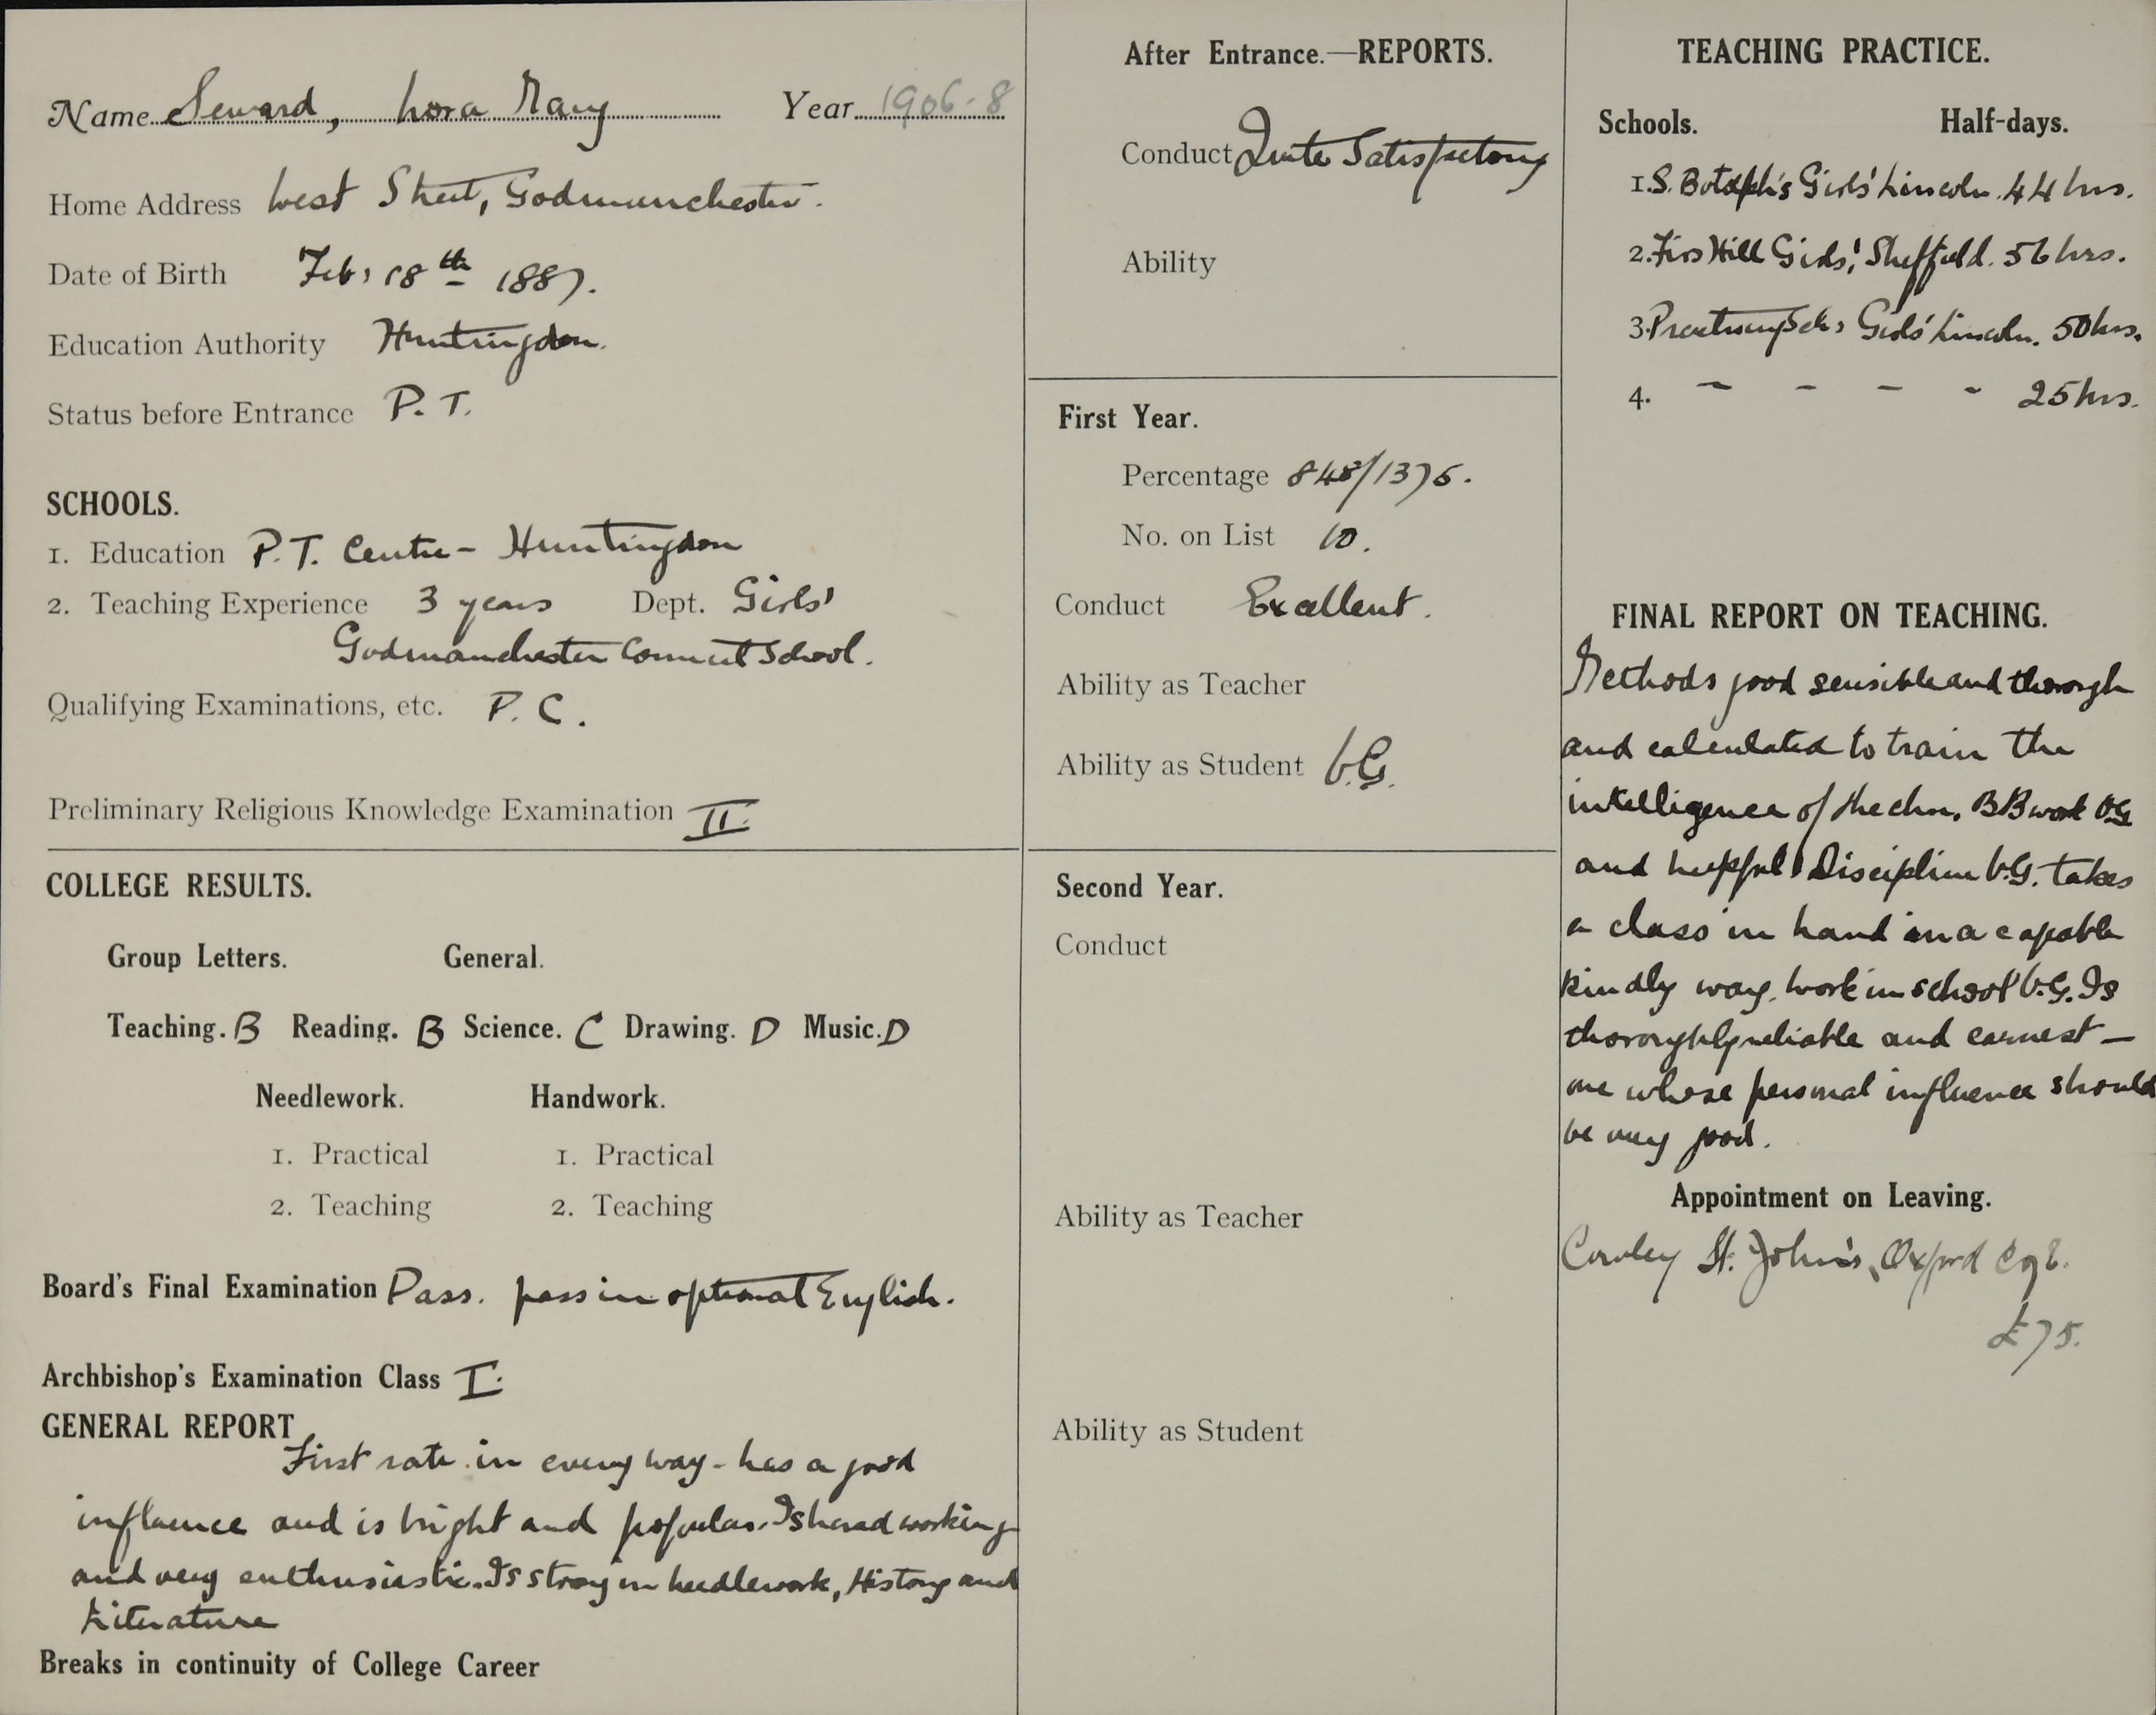 Name Seward, Nora Mary Year 1906-8
Home Address West Street, Godmanchester.
Date of Birth Feb, 18th 1887.
Education Authority Huntingdon.
Status before Entrance P. T.
SCHOOLS.
1. Education P.T. Centre - Huntingdon
2. Teaching Experience 3 years Dept. Girls'
Godmanchester Council School.
Qualifying Examinations, etc. P. C.
Preliminary Religious Knowledge Examination II.
COLLEGE RESULTS.
Group Letters. General.
Teaching. B Reading. B Science. C Drawing. D Music. D
Needlework. Handwork.
1. Practical 1. Practical
2. Teaching 2. Teaching
Board's Final Examination Pass. pass in optional English.
Archbishop's Examination Class I.
GENERAL REPORT
First rate in every way - has a good
influence and is bright and popular. Is hard working
and very enthusiastic. Is strong in needlework, History and
Literature
Breaks in continuity of College Career
After Entrance.—REPORTS.
Conduct Quite Satisfactory
Ability
First Year.
Percentage 848/1375.
No. on List 10.
Conduct Excellent.
Ability as Teacher
Ability as Student V.G.
Second Year.
Conduct
Ability as Teacher
Ability as Student
TEACHING PRACTICE.
Schools. Half-days.
1. S. Botolph's Girls' Lincoln. 44 hrs.
2. Firs Hill Girls', Sheffield. 56 hrs.
3. Practising Sch, Girls' Lincoln. 50 hrs.
4. - - - - 25 hrs.
FINAL REPORT ON TEACHING.
Methods good sensible and thorough
and calculated to train the
intelligence of the chn. BB work VG
and helpful. Discipline V.G. takes
a class in hand in a capable
kindly way. Work in school V.G. Is
thoroughly reliable and earnest —
one whose personal influence should
be very good.
Appointment on Leaving.
Cowley St. John's, Oxford C of E.
£75.